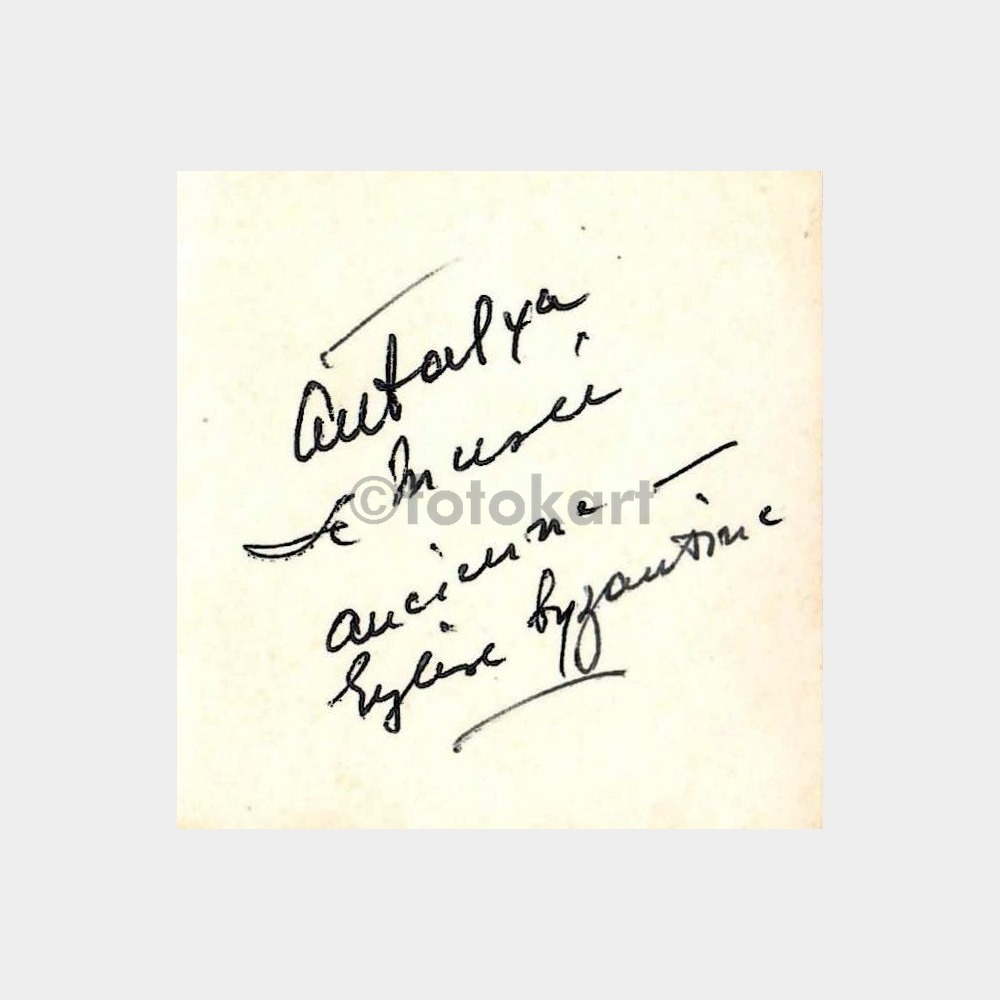 Antalya
Le Musée
©fotokart
ancienne
Eglise byzantine